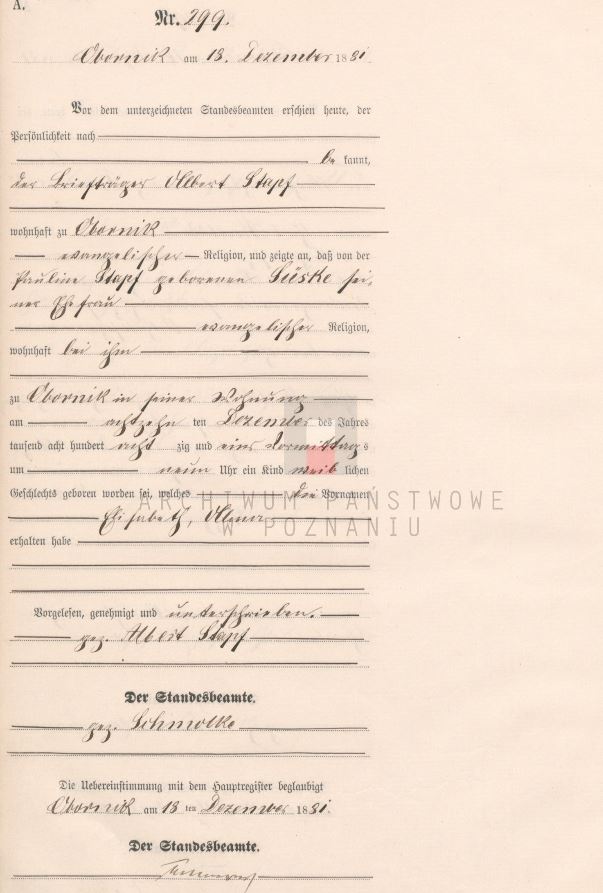 A.
Nr. 299.
Obornik am 18. Dezember 1881
Vor dem unterzeichneten Standesbeamten erschien heute, der
Persönlichkeit nach
be kannt,
der Briefträger Albert Stapf
wohnhaft zu Obornik
evangelischer Religion, und zeigte an, daß von der
Pauline Stapf geborenen Süske sei-
ner Ehefrau
evangelischer Religion,
wohnhaft bei ihm
zu Obornik in seiner Wohnung
am achtzehn ten Dezember des Jahres
tausend acht hundert acht zig und eins Vormittags
um neun Uhr ein Kind weib lichen
Geschlechts geboren worden sei, welches die Vornamen
Elisabeth, Alma
erhalten habe
ARCHIWUM PAŃSTWOWE
W POZNANIU
Vorgelesen, genehmigt und unterschrieben.
gez. Albert Stapf
Der Standesbeamte.
gez. Schmolke
Die Uebereinstimmung mit dem Hauptregister beglaubigt
Obornik am 18 ten Dezember 1881.
Der Standesbeamte.